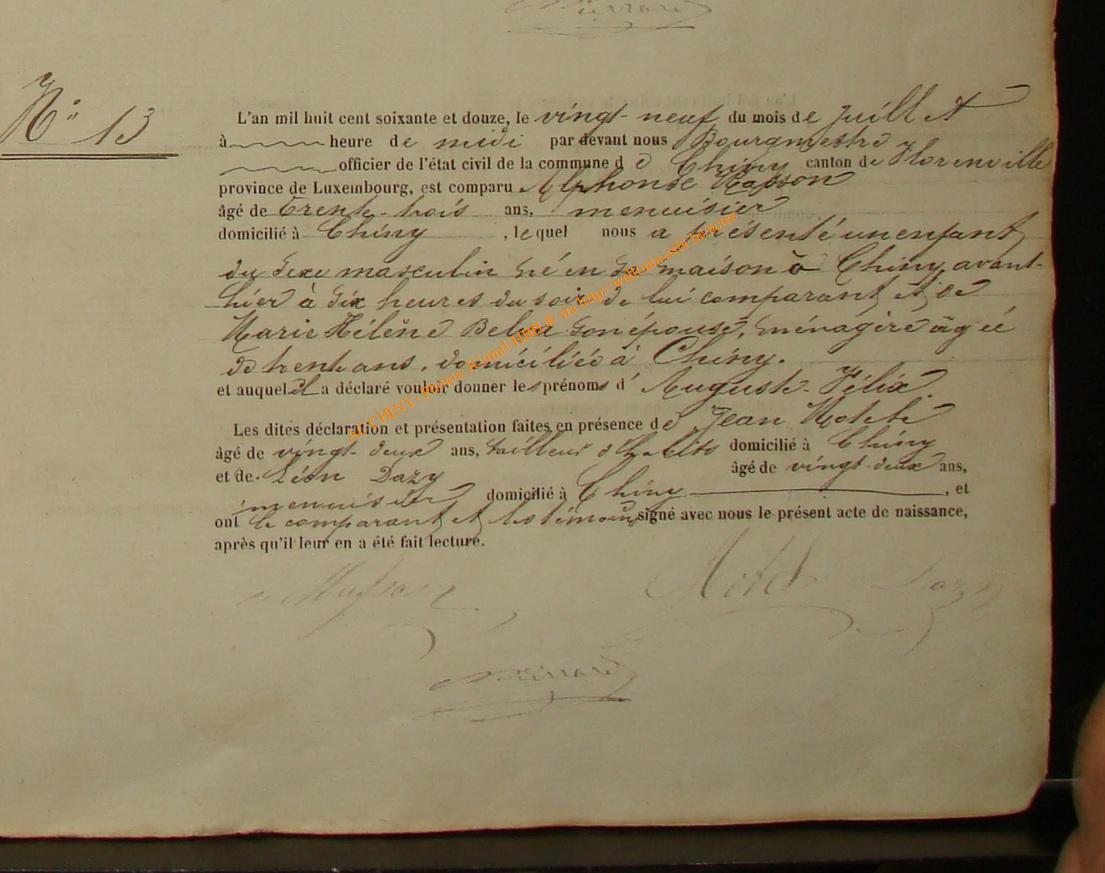 N° 13
L'an mil huit cent soixante et douze, le vingt-neuf du mois de Juillet
à heure de midi par devant nous Bourgmestre
officier de l'état civil de la commune de Chiny canton de Florenville
province de Luxembourg, est comparu Alphonse Masson
âgé de trente-trois ans, menuisier
domicilié à Chiny, lequel nous a présenté un enfant
du sexe masculin né en sa maison à Chiny, avant-
hier à dix heures du soir de lui comparant et de
Marie Hélène son épouse, ménagère âgée
de trente ans, domiciliée à Chiny.
et auquel il a déclaré vouloir donner les prénoms d'Auguste-Félix.
Les dites déclaration et présentation faites en présence de Jean
âgé de vingt-deux ans, tailleur d'habits domicilié à Chiny
et de Léon Dazy âgé de vingt-deux ans,
menuisier domicilié à Chiny, et
ont le comparant et les témoins signé avec nous le présent acte de naissance,
après qu'il leur en a été fait lecture.
Masson Dazy